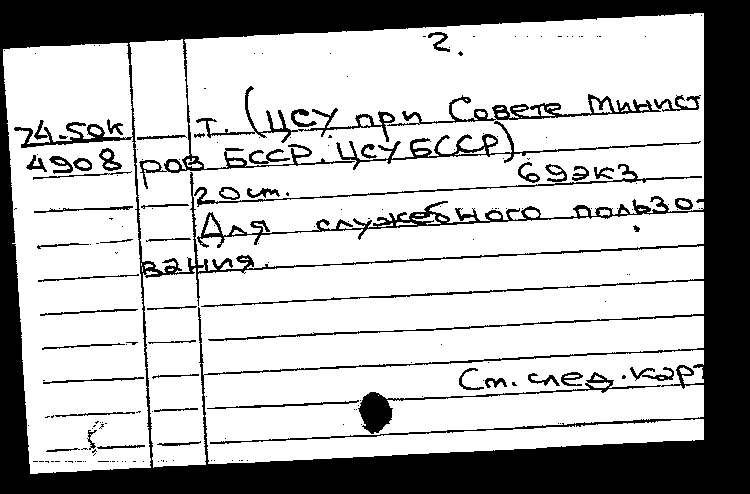 2.
74.50к т. (ЦСУ при Совете Минист
4908 ров БССР. ЦСУ БССР).
20 ст. 69экз.
Для служебного пользо-
вания.
См. след. карт